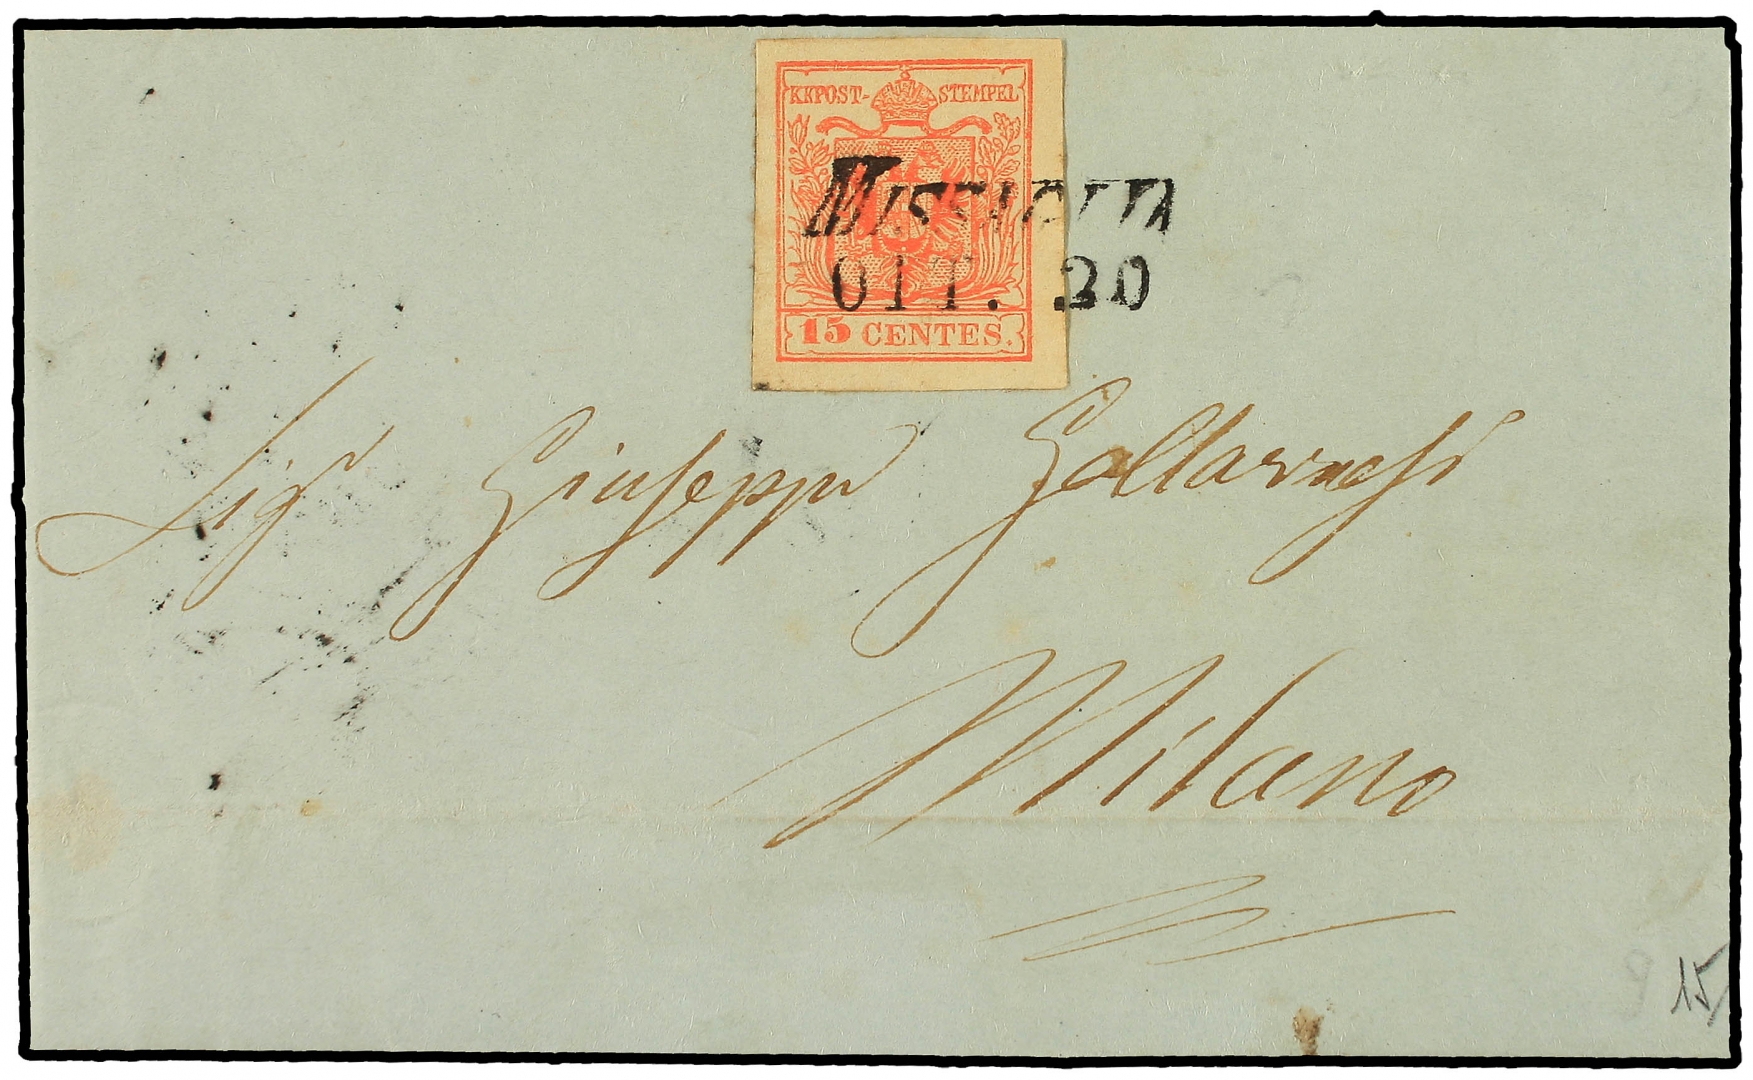 KKPOST-STEMPEL
MISSAGLIA
OTT. 20
15 CENTES.
Sig Giuseppe
Milano
15/